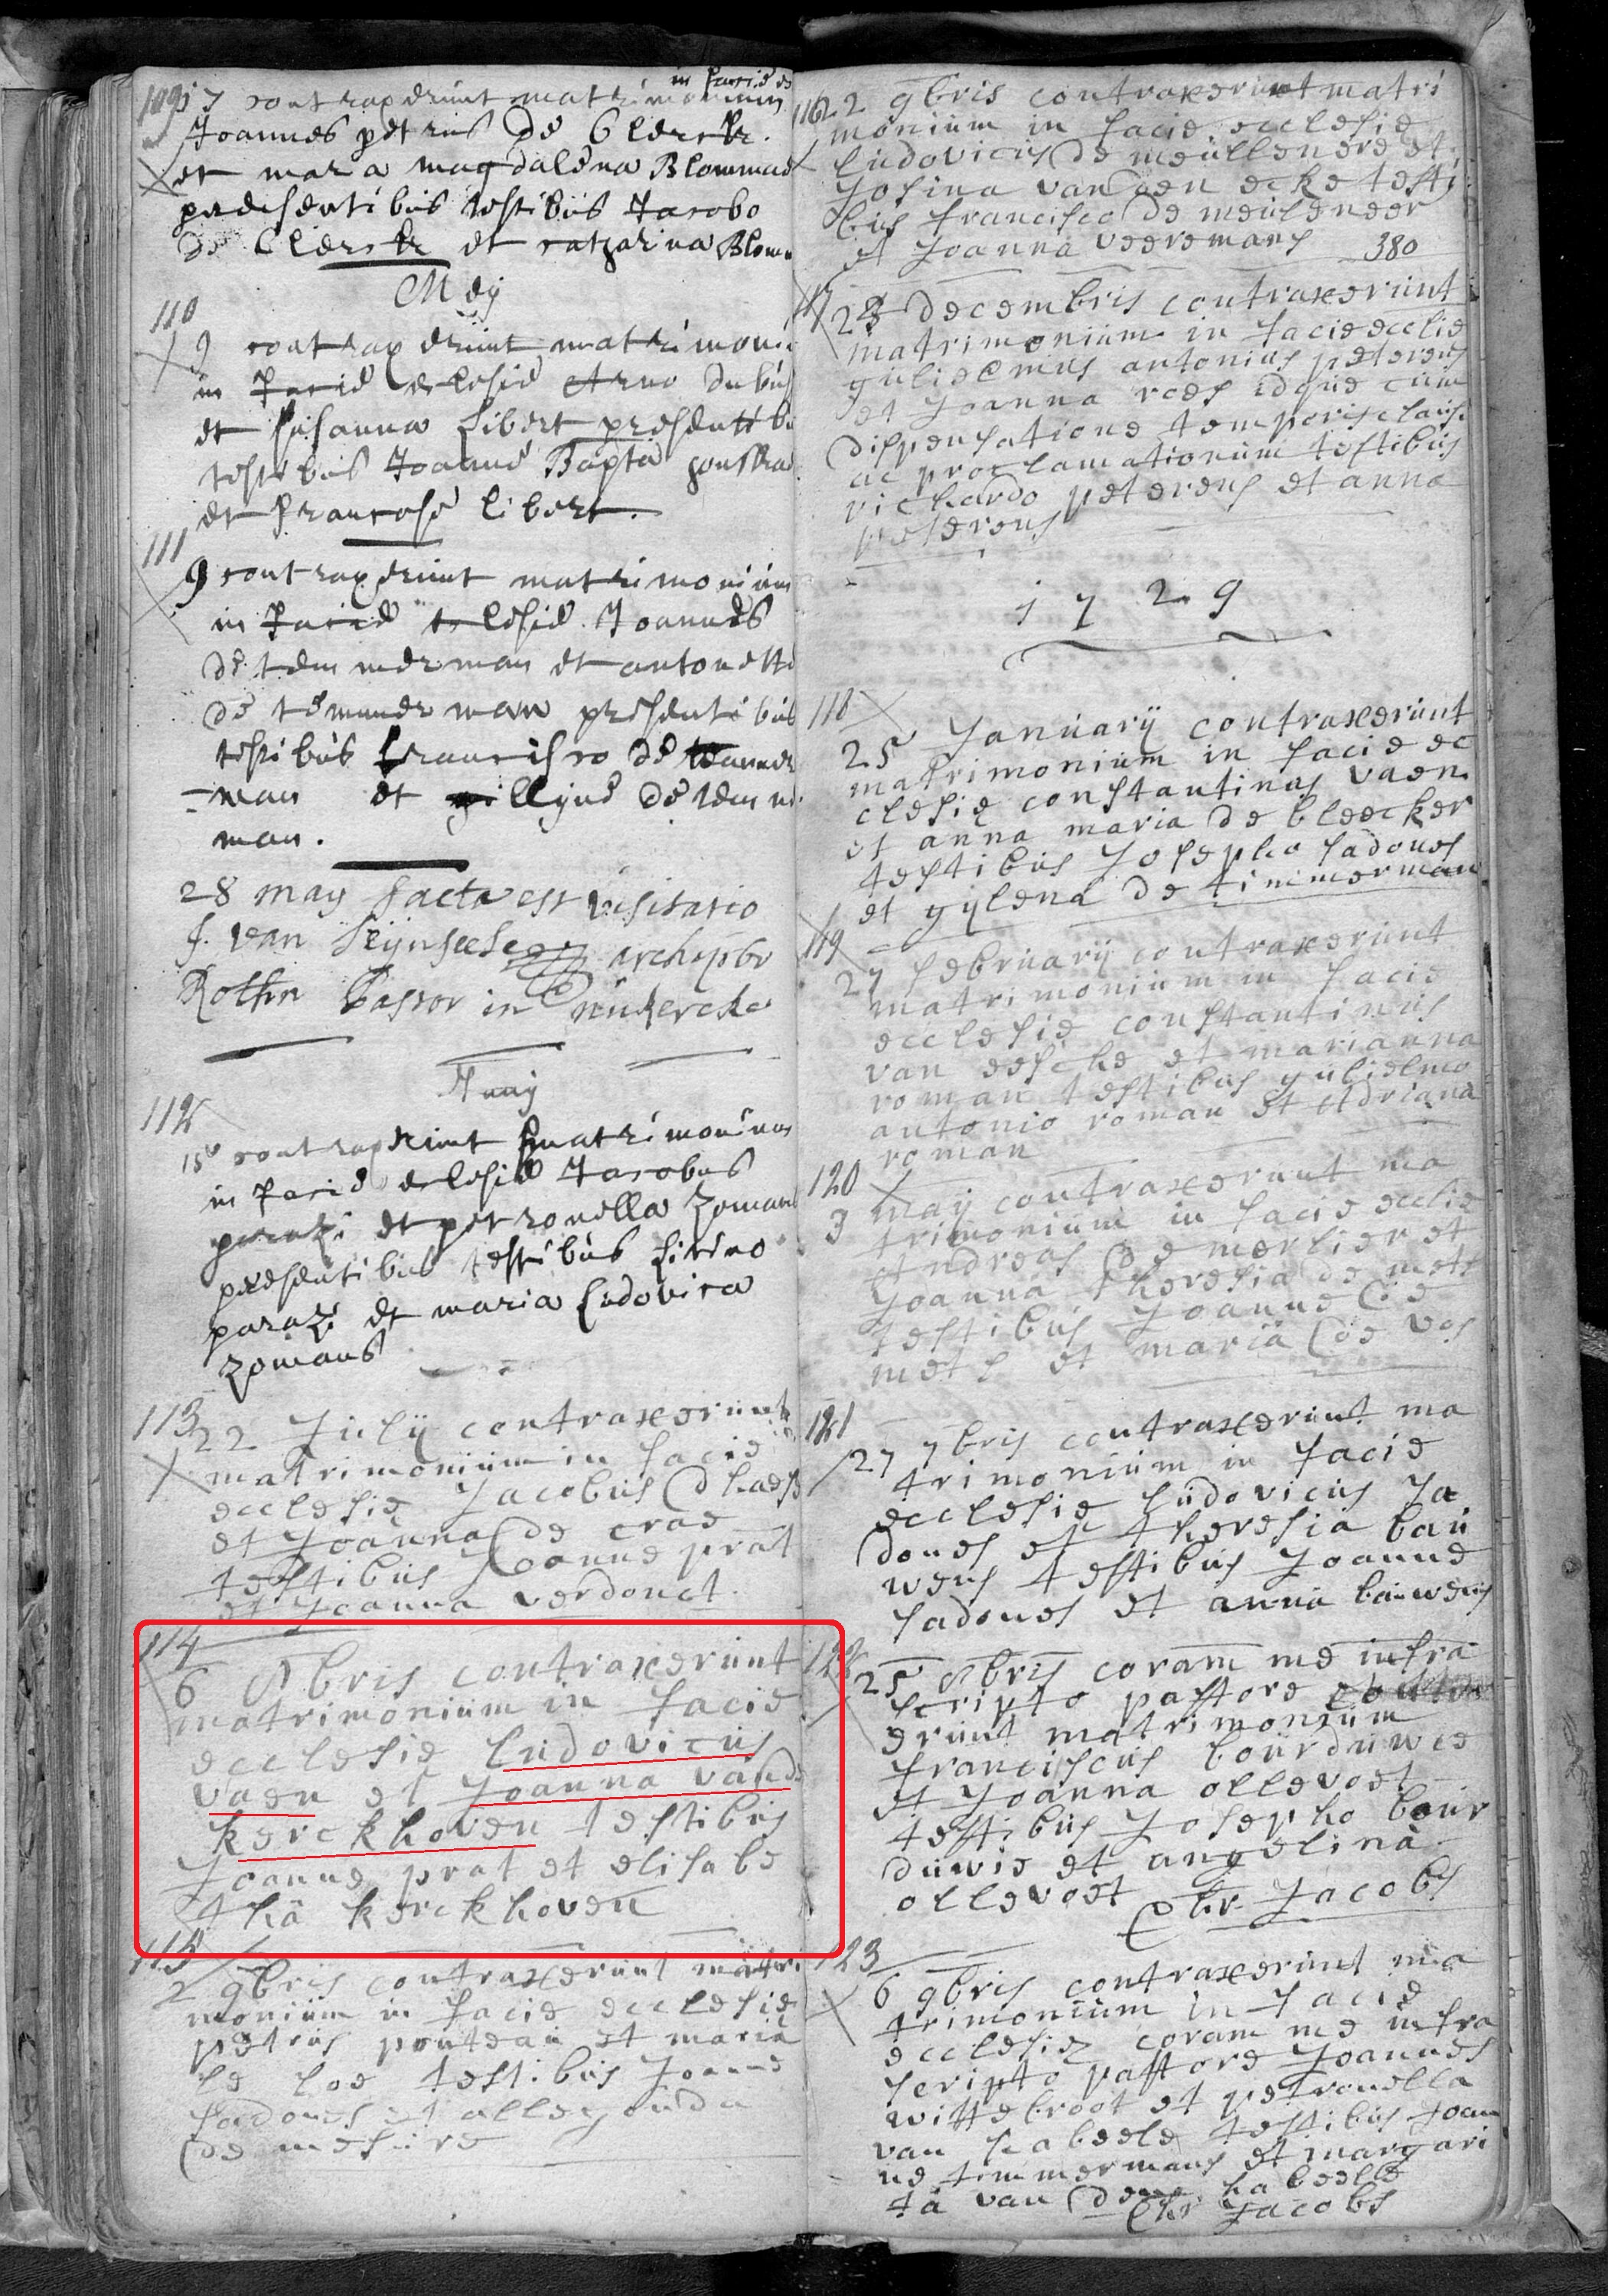 109
in facie ec
17 contraxerunt matrimonium
Joannes petrus De Clerck
et maria magdalena Blommae
praesentibus testibus Jacobo
De Clerck et catharina Blom
Meÿ
110
9 contraxerunt matrimoni
in facie eclesie Arno dubus
et susanna Libert presentibu
testibus Joanne Bapta
et francose libert.
111
9 contraxerunt matrimonium
in facie eclesie Joannes
de temmerman et antonette
de temmerman presentibus
testibus francisco de temmer
-man et gillijne de temm
man.
28 may facta est visitatio
J. van archipbr
pastor in
Junÿ
112
15 contraxerunt matrimonium
in facie eclesie Jacobus
parazi et petronella zomans
presentibus testibus livino
parazi et maria Ludovica
zomans
113
22 Julÿ contraxerunt
matrimonium in facie
ecclesie Jacobus dhaese
et Joanna de crae
testibus Joanne prat
et Joanna verdonct
114
6 8bris contraxerunt
matrimonium in facie
ecclesie ludovicus
vaen et Joanna vande
kerckhoven testibus
Joanne prat et elisabe
tha kerckhoven
115
2 9bris contraxerunt matri
monium in facie ecclesie
petrus ponteau et maria
le loe testibus Joanne
sadones et allegonda
de mesure
116
22 9bris contraxerunt matri
monium in facie ecclesie
ludovicus de meullenere et
Josina van den ecke testi
bus francisco de meuleneer
et Joanna veeremans 380
117
28 decembris contraxerunt
matrimonium in facie ecclie
gulielmus antonius peterens
et Joanna roes idque cum
dispensatione temporis clausi
ac proclamationum testibus
richardo peterens et anna
peterens
1729
118
25 Januarÿ contraxerunt
matrimonium in facie ec
clesie constantinus vaen
et anna maria de bleecker
testibus Josepho sadones
et gÿlena de timmerman
119
27 februarÿ contraxerunt
matrimonium in facie
ecclesie constantinus
van eesche et marianna
roman testibus gulielmo
antonio roman et Adriana
roman
120
3 maÿ contraxerunt ma
trimonium in facie ecclie
Andreas de merlier et
Joanna theresia de mets
testibus Joanne de
mets et maria de vos
121
27 7bris contraxerunt ma
trimonium in facie
ecclesie ludovicus sa
dones et theresia bau
wens testibus Joanne
sadones et anna bauwens
122
25 8bris coram me infra
scripto pastore contrax
erunt matrimonium
franciscus bourduwie
et Joanna ollevoet
testibus Josepho bour
duwie et angelina
ollevoet
Chr. Jacobs
123
6 9bris contraxerunt ma
trimonium in facie
ecclesie coram me infra
scripto pastore Joannes
wittebroot et petronella
van kabeele testibus Joan
ne timmermans et margari
ta van den kabeele
Chr Jacobs